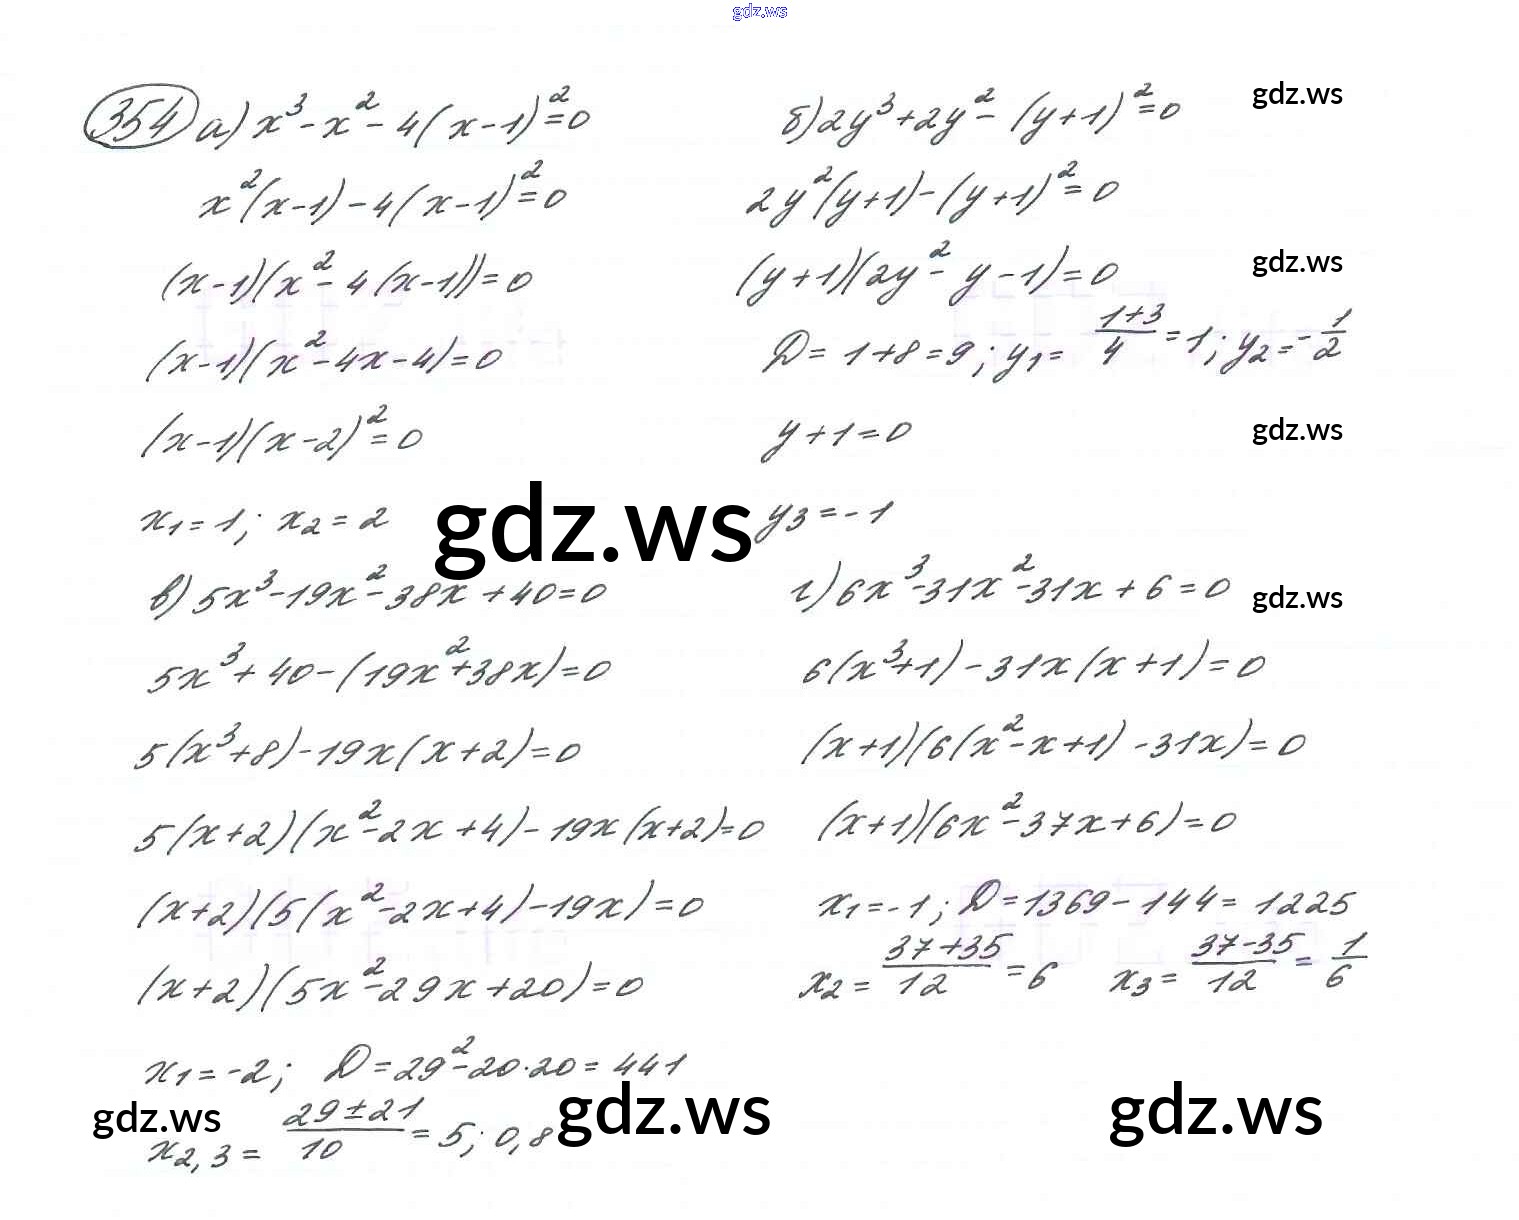 gdz.ws
354 а) x³ - x² - 4(x-1)² = 0
x²(x-1) - 4(x-1)² = 0
(x-1)(x² - 4(x-1)) = 0
(x-1)(x² - 4x - 4) = 0
(x-1)(x-2)² = 0
x₁ = 1; x₂ = 2
б) 2y³ + 2y² - (y+1)² = 0
2y²(y+1) - (y+1)² = 0
(y+1)(2y² - y - 1) = 0
D = 1+8 = 9; y₁ = (1+3)/4 = 1; y₂ = -1/2
y+1 = 0
y₃ = -1
gdz.ws
gdz.ws
gdz.ws
gdz.ws
в) 5x³ - 19x² - 38x + 40 = 0
5x³ + 40 - (19x² + 38x) = 0
5(x³+8) - 19x(x+2) = 0
5(x+2)(x² - 2x + 4) - 19x(x+2) = 0
(x+2)(5(x² - 2x + 4) - 19x) = 0
(x+2)(5x² - 29x + 20) = 0
x₁ = -2; D = 29² - 20·20 = 441
x₂,₃ = (29 ± 21)/10 = 5; 0,8
г) 6x³ - 31x² - 31x + 6 = 0
6(x³+1) - 31x(x+1) = 0
(x+1)(6(x² - x + 1) - 31x) = 0
(x+1)(6x² - 37x + 6) = 0
x₁ = -1; D = 1369 - 144 = 1225
x₂ = (37+35)/12 = 6 x₃ = (37-35)/12 = 1/6
gdz.ws
gdz.ws
gdz.ws
gdz.ws